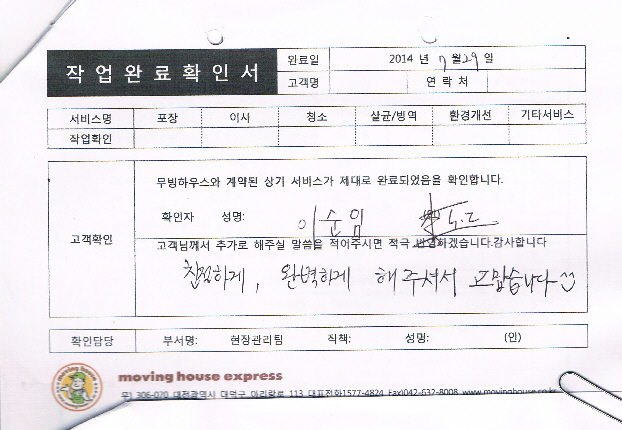 작업완료확인서
완료일 2014 년 7 월 29 일
고객명 연락처
서비스명 포장 이사 청소 살균/방역 환경개선 기타서비스
작업확인
고객확인
무빙하우스와 계약된 상기 서비스가 제대로 완료되었음을 확인합니다.
확인자 성명: 이순임
고객님께서 추가로 해주실 말씀을 적어주시면 적극 반영하겠습니다.감사합니다
친절하게, 완벽하게 해주셔서 고맙습니다
확인담당 부서명: 현장관리팀 직책: 성명: (인)
moving house
moving house express
우) 306-020 대전광역시 대덕구 아리랑로 113 대표전화1577-4824 Fax)042-632-8008 www.movinghouse.co.kr